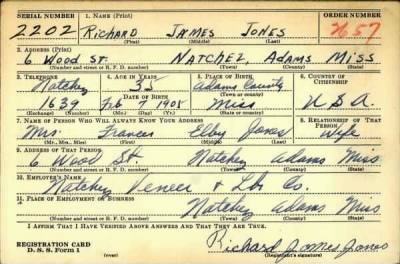 SERIAL NUMBER 1. NAME (Print) ORDER NUMBER
2202 RICHARD JAMES JONES 2657
(First) (Middle) (Last)
2. ADDRESS (Print)
6 Wood St. NATCHEZ, ADAMS MISS
(Number and street or R. F. D. number) (Town) (County) (State)
3. TELEPHONE 4. AGE IN YEARS 5. PLACE OF BIRTH 6. COUNTRY OF CITIZENSHIP
Natchez 35 Adams County
DATE OF BIRTH (Town or county)
1639 Feb 7 1905 Miss USA.
(Mo.) (Day) (Yr.) (State or country)
7. NAME OF PERSON WHO WILL ALWAYS KNOW YOUR ADDRESS 8. RELATIONSHIP OF THAT PERSON
Mrs. Frances Elby Jones Wife
(Mr., Mrs., Miss) (First) (Middle) (Last)
9. ADDRESS OF THAT PERSON
6 Wood St. Natchez Adams Miss
(Number and street or R. F. D. number) (Town) (County) (State)
10. EMPLOYER'S NAME
Natchez Veneer & Lbr Co.
11. PLACE OF EMPLOYMENT OR BUSINESS
Natchez Adams Miss
(Number and street or R. F. D. number) (Town) (County) (State)
I AFFIRM THAT I HAVE VERIFIED ABOVE ANSWERS AND THAT THEY ARE TRUE.
REGISTRATION CARD Richard James Jones
D. S. S. Form 1 (over) (Registrant's signature)